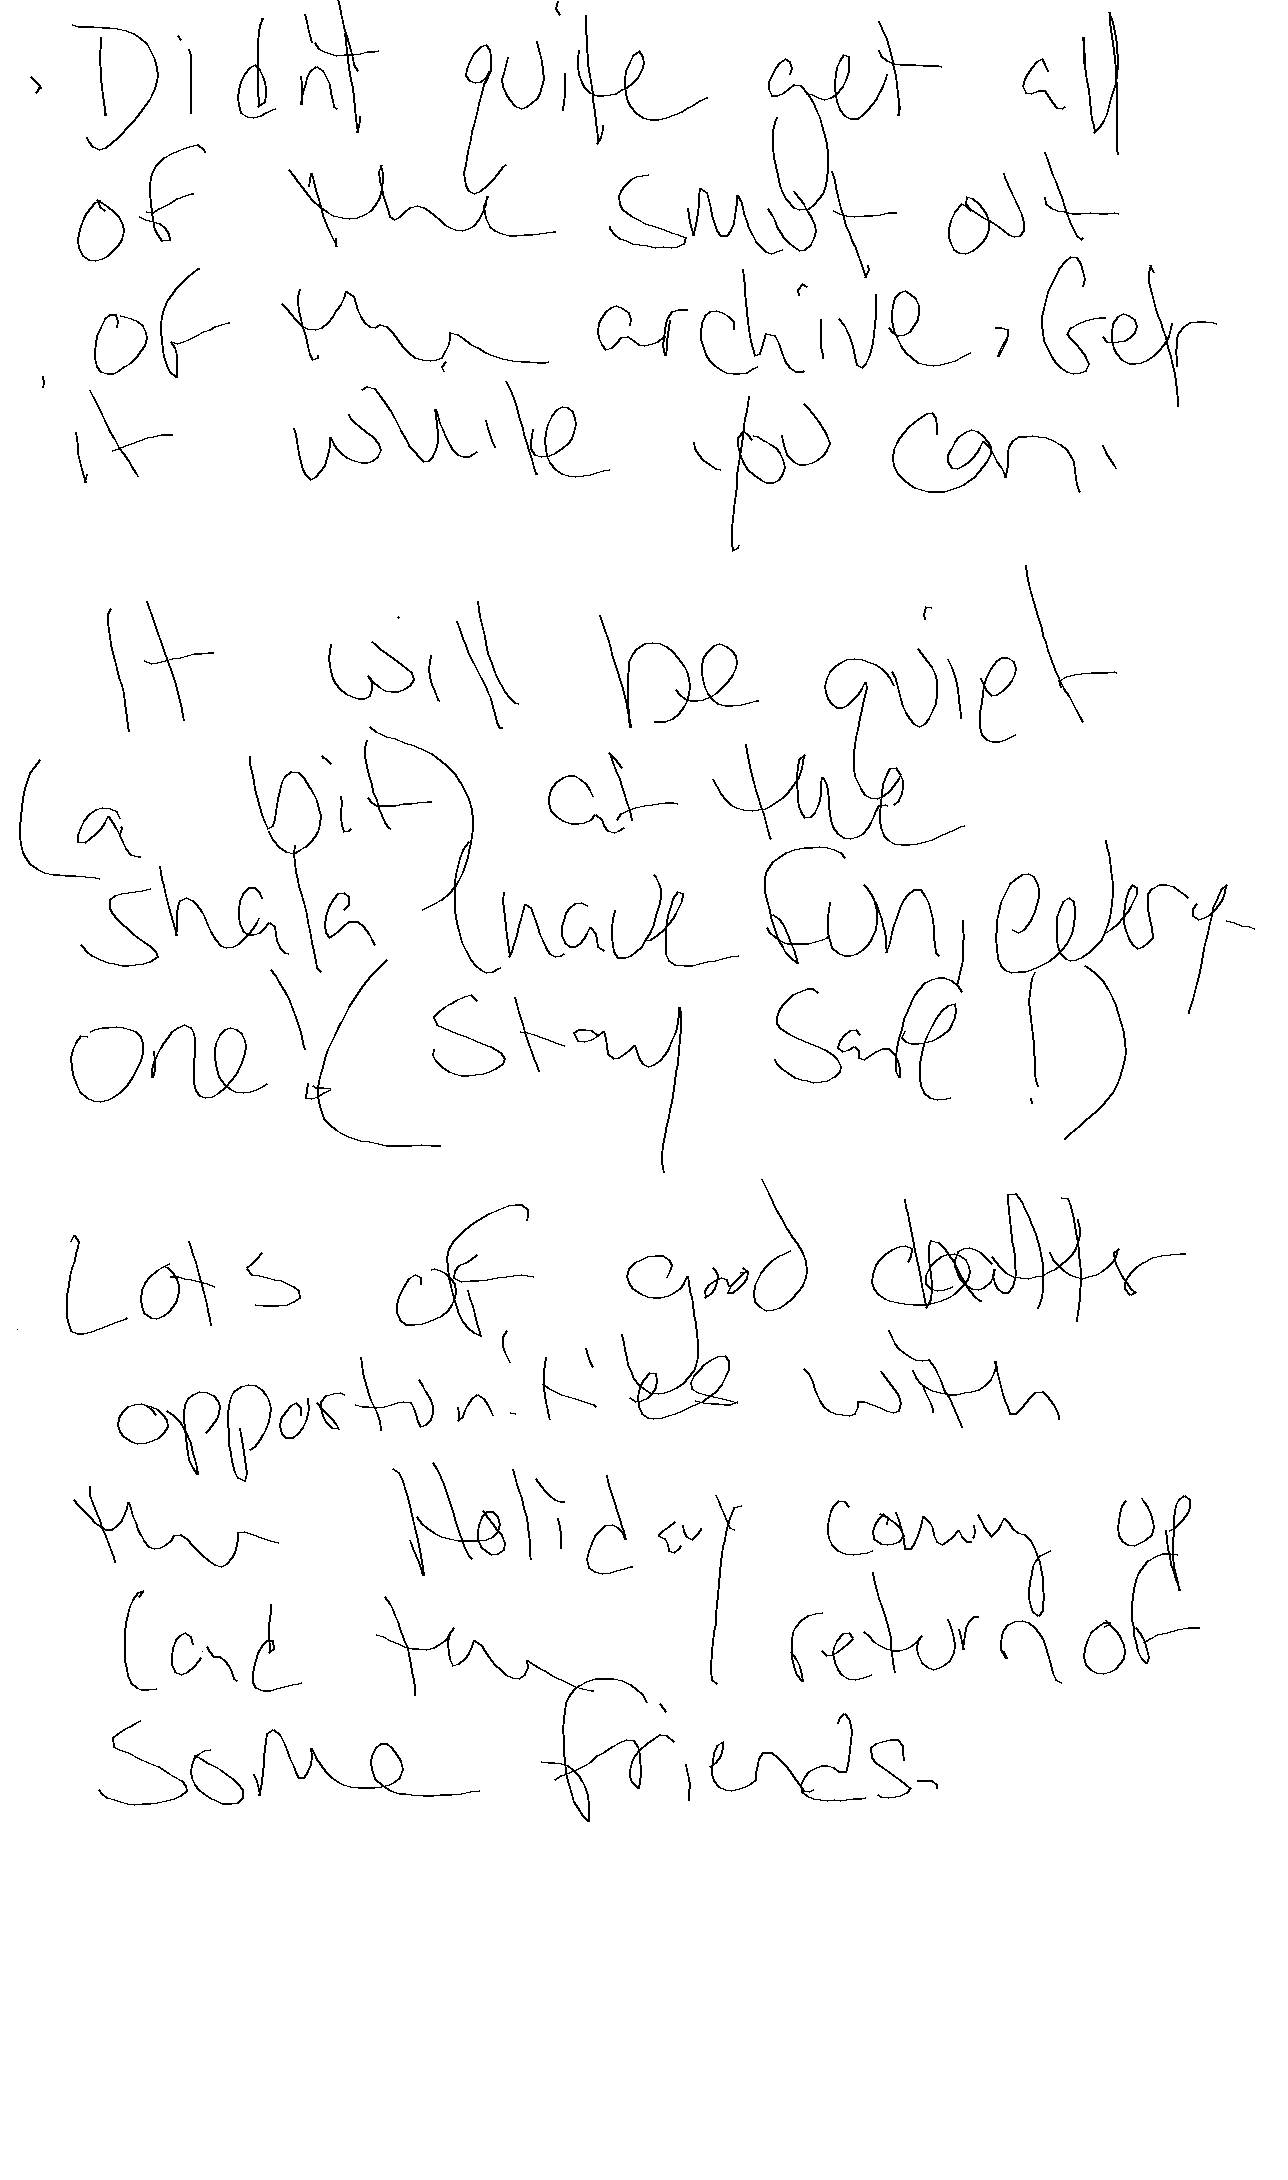 Didn't quite get all
of the smut out
of the archive. Get
it while you can.
It will be quiet
(a bit) at the
shala (have fun, every-
one! (Stay safe!)
Lots of good
opportunities with
the Holiday coming up
(and the return of
some friends.